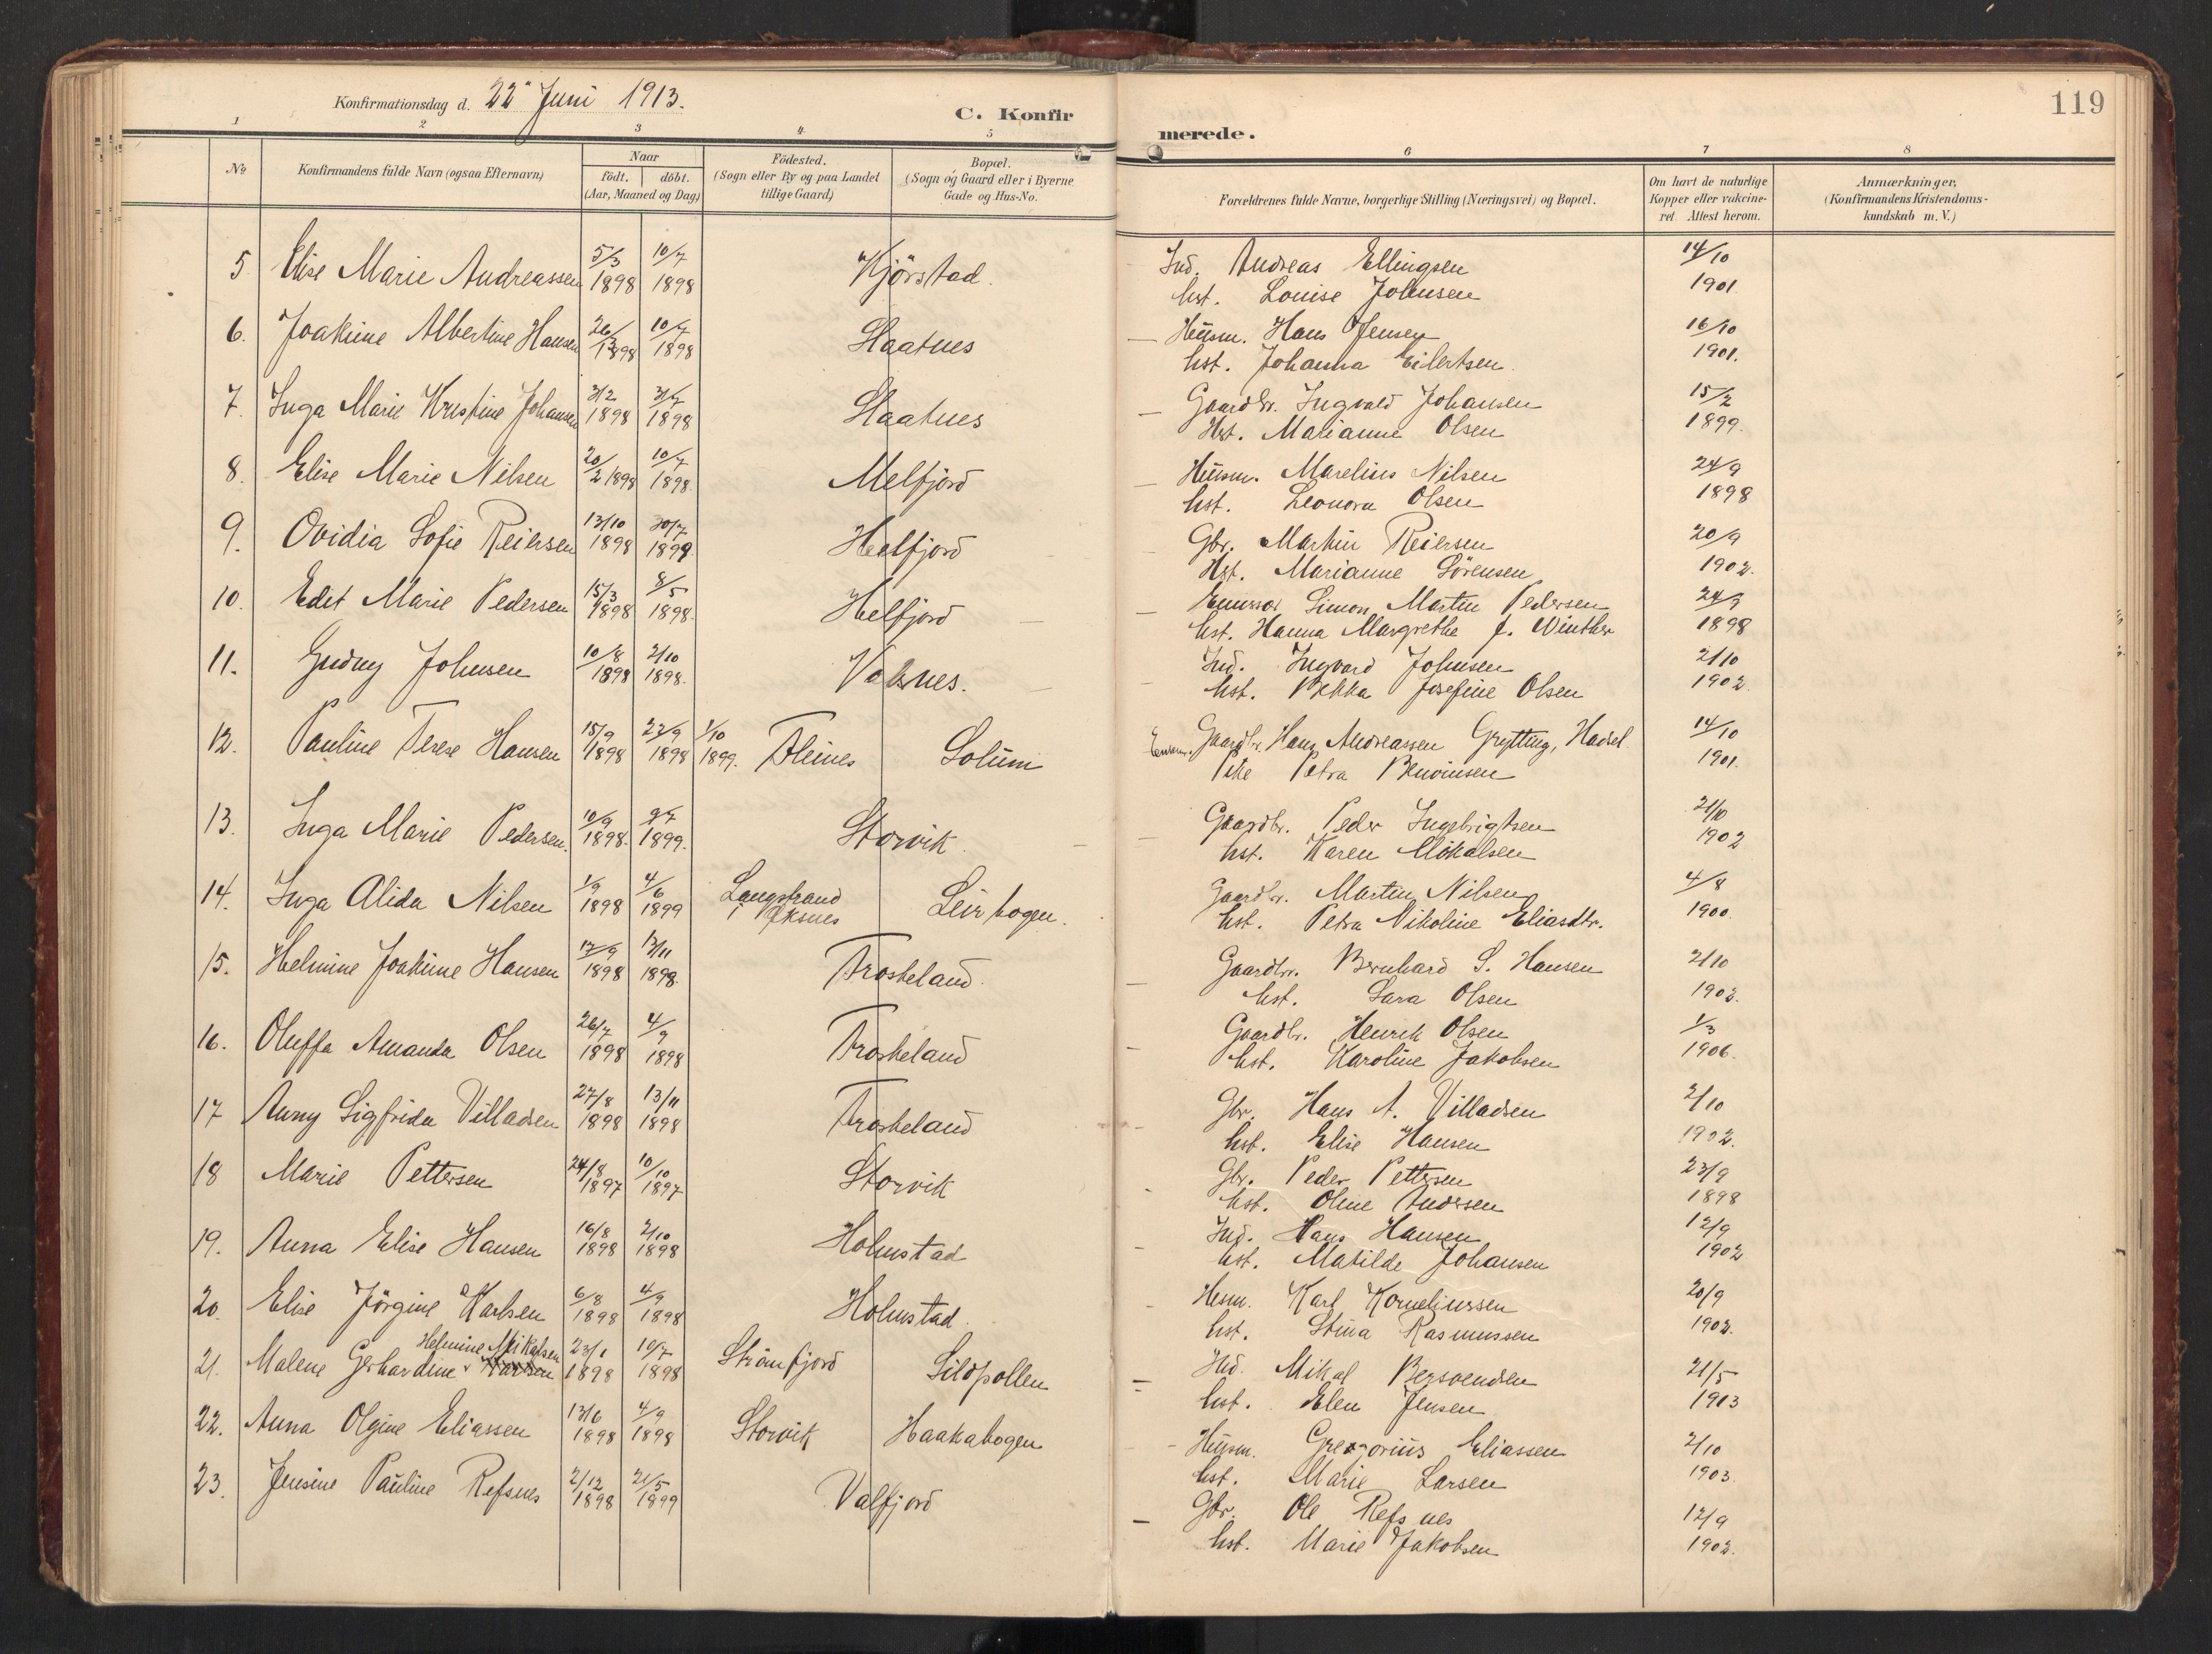 Konfirmationsdag d. 22 Juni 1913.
C. Konfirmerede.
119
1 2 3 4 5 6 7 8
No
Konfirmandens fulde Navn (ogsaa Efternavn)
Naar
födt. döbt.
(Aar, Maaned og Dag)
Födested.
(Sogn eller By og paa Landet
tillige Gaard)
Bopæl.
(Sogn og Gaard eller i Byerne
Gade og Hus-No.
Forældrenes fulde Navne, borgerlige Stilling (Næringsvei) og Bopæl.
Om havt de naturlige
Kopper eller vakcine-
ret Attest herom.
Anmærkninger.
(Konfirmandens Kristendoms-
kundskab m. V.)
5 Elise Marie Andreassen 5/3 1898 10/7 1898 Kjörstad. Ind. Andreas Ellingsen 14/10
Hst. Louise Johnsen 1901
6. Joakime Albertine Hansen 26/3 1898 10/7 1898 Slaatnes Husm. Hans Jensen 16/10
Hst. Johanna Eilertsen 1901.
7. Inga Marie Kristine Johansen 3/2 1898 3/7 1898 Slaatnes Gaardbr. Ingvald Johansen 15/2
Hst. Marianne Olsen 1899.
8. Elise Marie Nilsen 20/2 1898 10/7 1898. Melfjord Husm. Marelius Nilsen 24/9
Hst. Leonora Olsen 1898
9. Ovidia Sofie Reiersen 13/10 1898 30/7 1899 Helfjord Gbr. Martin Reiersen 20/9
Hst. Marianne Sörensen 1902.
10. Edit Marie Pedersen 15/3 1898 8/5 1898. Helfjord Emissær Simon Martin Pedersen 24/9
Hst. Hanna Margrethe f. Winther 1898
11. Gudny Johnsen 10/8 1898 2/10 1898. Valsnes. Ind. Ingvard Johnsen 21/10
Hst. Rekka Josefine Olsen 1902
12. Pauline Terese Hansen 15/9 1898 22/9 1898 1/10 1899. Fleines Solum Enkem. Gaardbr. Hans Andreassen Grytting, Hadsel 14/10
Pike Petra Benoniisen 1901.
13. Inga Marie Pedersen. 10/9 1898. 9/7 1899. Storvik. Gaardbr. Peder Ingebrigtsen 21/10
Hst. Karen Mikalsen 1902
14. Inga Alida Nilsen 1/9 1898 4/6 1899 Langstrand i Øksnes Leirbogen. Gaardbr. Martin Nilsen 4/8
Hst. Petra Nikoline Eliasdtr. 1900.
15. Helmine Joakime Hansen 12/9 1898 13/11 1898. Frosteland. Gaardbr. Bernhard S. Hansen 2/10
Hst. Sara Olsen 1902.
16. Oluffa Amanda Olsen 26/7 1898 4/9 1898 Frosteland Gaardbr. Henrik Olsen 1/3
Hst. Karoline Jakobsen 1906.
17 Anny Sigfrida Villadsen 27/8 1898 13/11 1898 Frosteland Gbr. Hans A. Villadsen 2/10
Hst. Elise Hansen 1902.
18 Marie Pettersen 24/8 1897 10/10 1897 Storvik Gbr. Peder Pettersen 23/9
Hst. Oline Andersen 1898
19. Anna Elise Hansen 16/8 1898 2/10 1898 Holmstad Ind. Hans Hansen 12/9
Hst. Matilde Johansen 1902
20. Elise Jörgine Karlsen 6/8 1898 4/9 1898 Holmstad. Husm. Karl Korneliussen 20/9
Hst. Stina Rasmussen 1902.
21. Malene Gerhardine Helmine Mikalsen 23/1 1898 10/7 1898 Strömfjord Sildpollen Ind. Mikal Bersvendsen 21/5
Hst. Elen Jensen 1913
22. Anna Olgine Eliassen 13/6 1898 4/9 1898 Storvik Haakabogen Husm. Gregorius Eliassen 2/10
Hst. Marie Larsen 1903.
23. Jensine Pauline Refsnes 2/12 1898 21/5 1899 Valfjord Gbr. Ole Refsnes 12/9
Hst. Marie Jakobsen 1902.